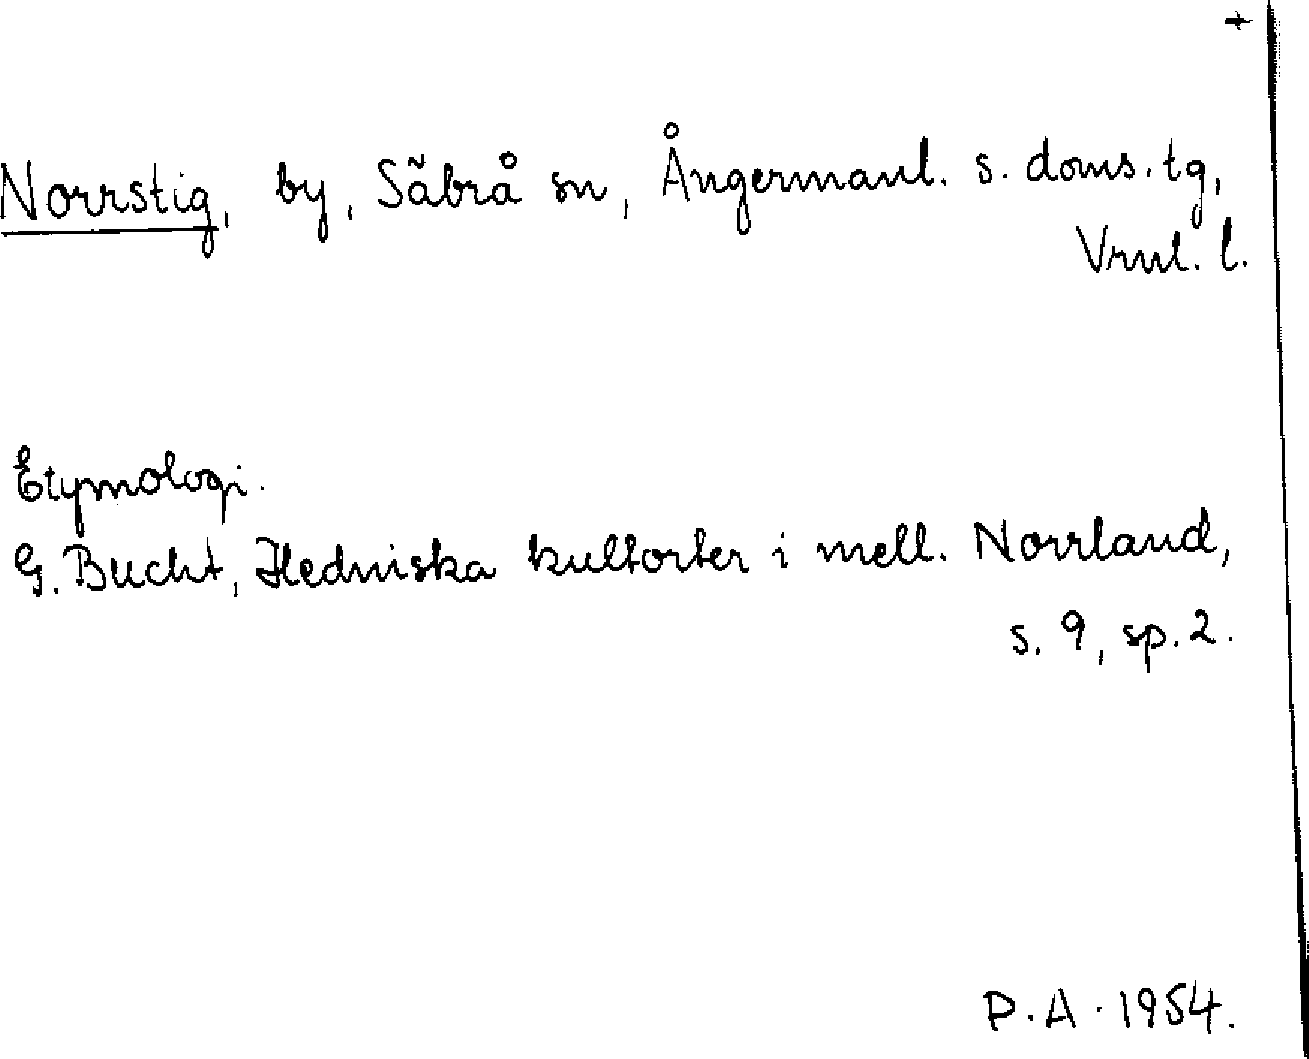 +
Norrstig, by, Säbrå sn, Ångermanl. s. doms. tg,
Vrnl. l.
Etymologi.
G. Bucht, Hedniska kultorter i mell. Norrland,
s. 9, sp. 2.
P. A. 1954.